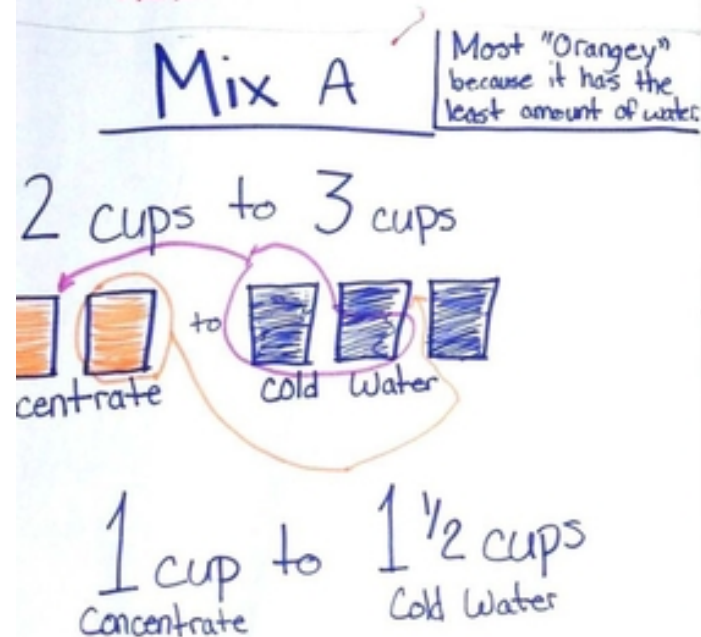 Mix A
Most "Orangey"
because it has the
least amount of water.
2 cups to 3 cups
to
centrate
Cold Water
1 cup to 1 1/2 cups
Concentrate
Cold Water